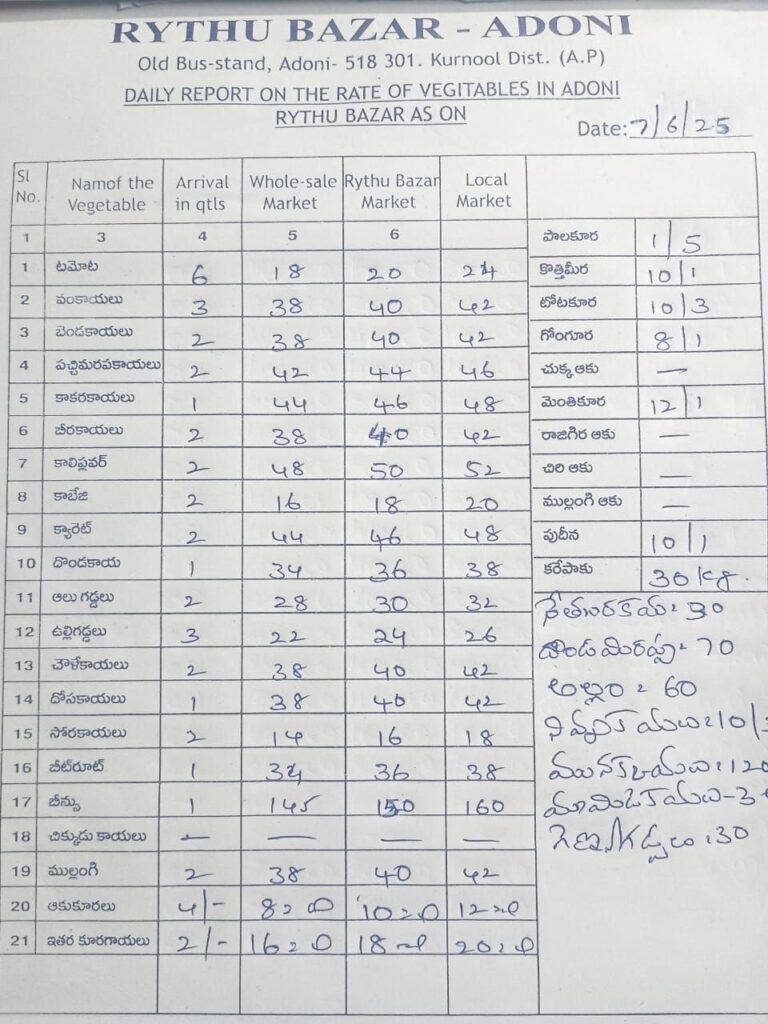 RYTHU BAZAR - ADONI
Old Bus-stand, Adoni- 518 301. Kurnool Dist. (A.P)
DAILY REPORT ON THE RATE OF VEGITABLES IN ADONI
RYTHU BAZAR AS ON
Date: 7/6/25
Sl No. Namof the Vegetable Arrival in qtls Whole-sale Market Rythu Bazar Market Local Market
1 3 4 5 6
1 టమోట 6 18 20 24
2 వంకాయలు 3 38 40 42
3 బెండకాయలు 2 38 40 42
4 పచ్చిమరపకాయలు 2 42 44 46
5 కాకరకాయలు 1 44 46 48
6 బీరకాయలు 2 38 40 42
7 కాలిఫ్లవర్ 2 48 50 52
8 కాబేజి 2 16 18 20
9 క్యారెట్ 2 44 46 48
10 దొండకాయ 1 34 36 38
11 ఆలు గడ్డలు 2 28 30 32
12 ఉల్లిగడ్డలు 3 22 24 26
13 చౌళేకాయలు 2 38 40 42
14 దోసకాయలు 1 38 40 42
15 సోరకాయలు 2 14 16 18
16 బీట్‌రూట్ 1 34 36 38
17 బీన్సు 1 145 150 160
18 చిక్కుడు కాయలు — — — —
19 ముల్లంగి 2 38 40 42
20 ఆకుకూరలు 4/- 8=0 10=0 12=0
21 ఇతర కూరగాయలు 2/- 16=0 18=0 20=0
పాలకూర 1/5
కొత్తిమీర 10/1
టోటకూర 10/3
గోంగూర 8/1
చుక్క ఆకు —
మెంతికూర 12/1
రాజిగిర ఆకు —
చిరి ఆకు —
ముల్లంగి ఆకు —
పుదీన 10/1
కరేపాకు 30 Kg.
90
70
అల్లం = 60
10/
120
మామిడికాయలు - 3
30